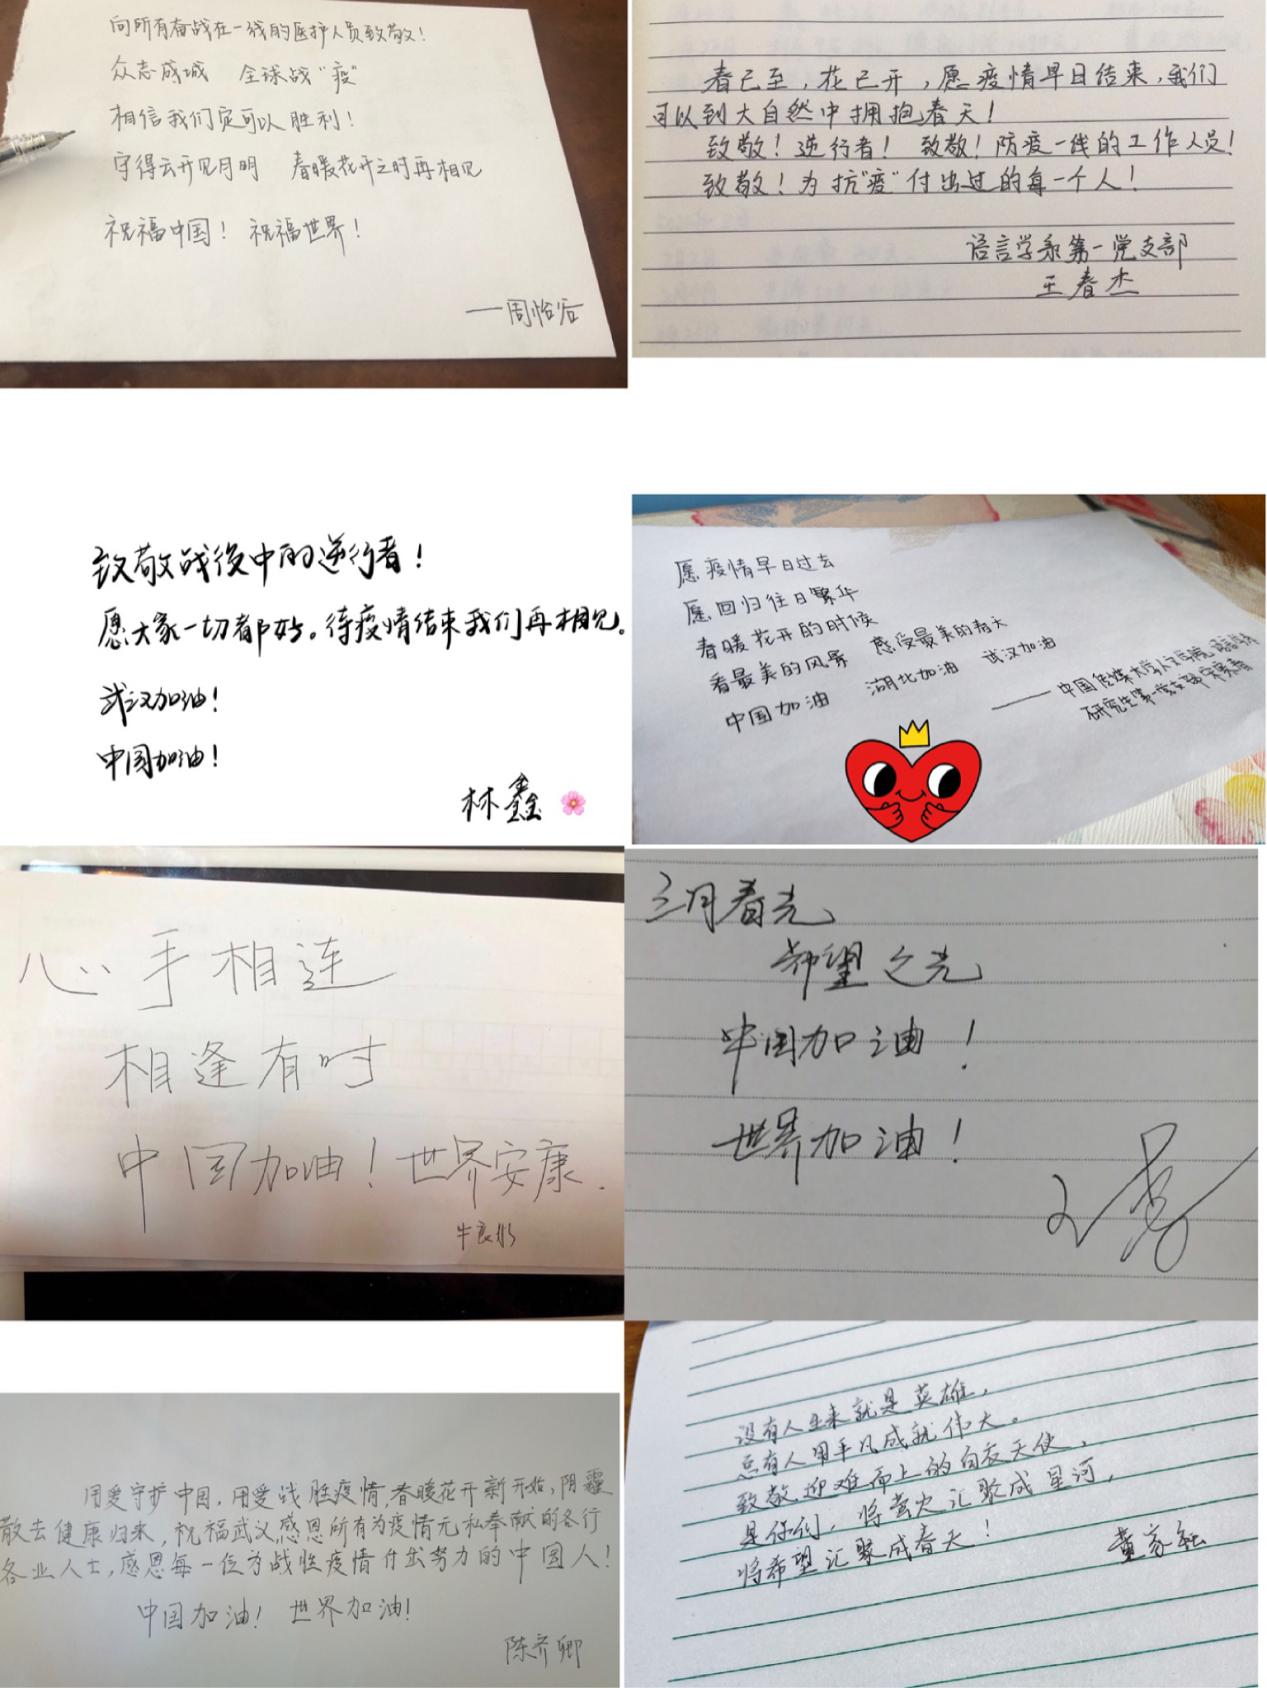 向所有奋战在一线的医护人员致敬!
众志成城 全球战“疫”
相信我们定可以胜利!
守得云开见月明 春暖花开之时再相见
祝福中国! 祝福世界!
——周怡谷
春已至,花已开,愿疫情早日结束,我们
可以到大自然中拥抱春天!
致敬!逆行者! 致敬!防疫一线的工作人员!
致敬!为抗“疫”付出过的每一个人!
语言学系第一党支部
王春杰
致敬战役中的逆行者!
愿大家一切都好。待疫情结束我们再相见。
武汉加油!
中国加油!
林鑫
愿疫情早日过去
愿回归往日繁华
春暖花开的时候 感受最美的春天
看最美的风景
中国加油 湖北加油 武汉加油
——中国传媒大学人文学院
研究生第一党支部
心手相连
相逢有时
中国加油!世界安康.
三月春光
希望之光
中国加油!
世界加油!
用爱守护中国,用爱战胜疫情,春暖花开新开始,阴霾
散去健康归来,祝福武汉,感恩所有为疫情无私奉献的各行
各业人士,感恩每一位为战胜疫情付出努力的中国人!
中国加油! 世界加油!
陈齐卿
没有人生来就是英雄,
总有人用平凡成就伟大。
致敬迎难而上的白衣天使,
是你们,将萤火汇聚成星河,
将希望汇聚成春天!